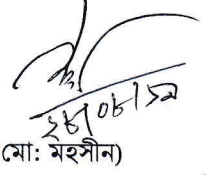 ২৮/০৮/১৯
মো: মহসীন)